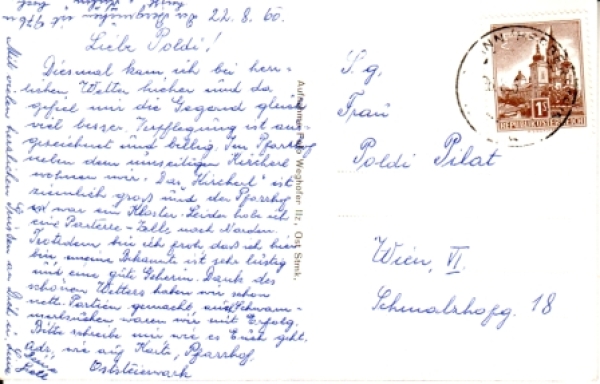 22. 8. 60.
Liebe Poldi!
Diesmal kam ich bei herr-
lichem Wetter hieher und da
gefiel mir die Gegend gleich
viel besser. Verpflegung ist aus
gezeichnet und billig. Im Pfarrhof
neben dem umseitigen Kircherl
wohnen wir. Das "Kircherl" ist
ziemlich groß und der Pfarrhof
war ein Kloster. Leider hab ich
eine Parterre-Zelle nach Norden.
Trotzdem bin ich froh daß ich hier
bin, meine Bekannte ist sehr lustig
und eine gute Geherin. Dank des
schönen Wetters haben wir schon
nette Partien gemacht, auch Schwam-
merlsuchen waren wir mit Erfolg.
Bitte schreibe mir wie es Euch geht.
Adr. wie auf Karte, Pfarrhof.
Oststeiermark
Mit vielen herzlichen Grüßen an Dich
Aufnahme Foto Weghofer Ilz, Ost Stmk.
S. g.
Frau
Poldi Pilat
Wien, VI.
Schmalzhofg. 18
1S
REPUBLIK ÖSTERREICH